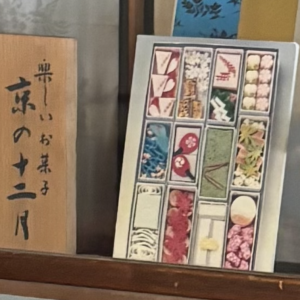 楽しいお菓子
京の十二月